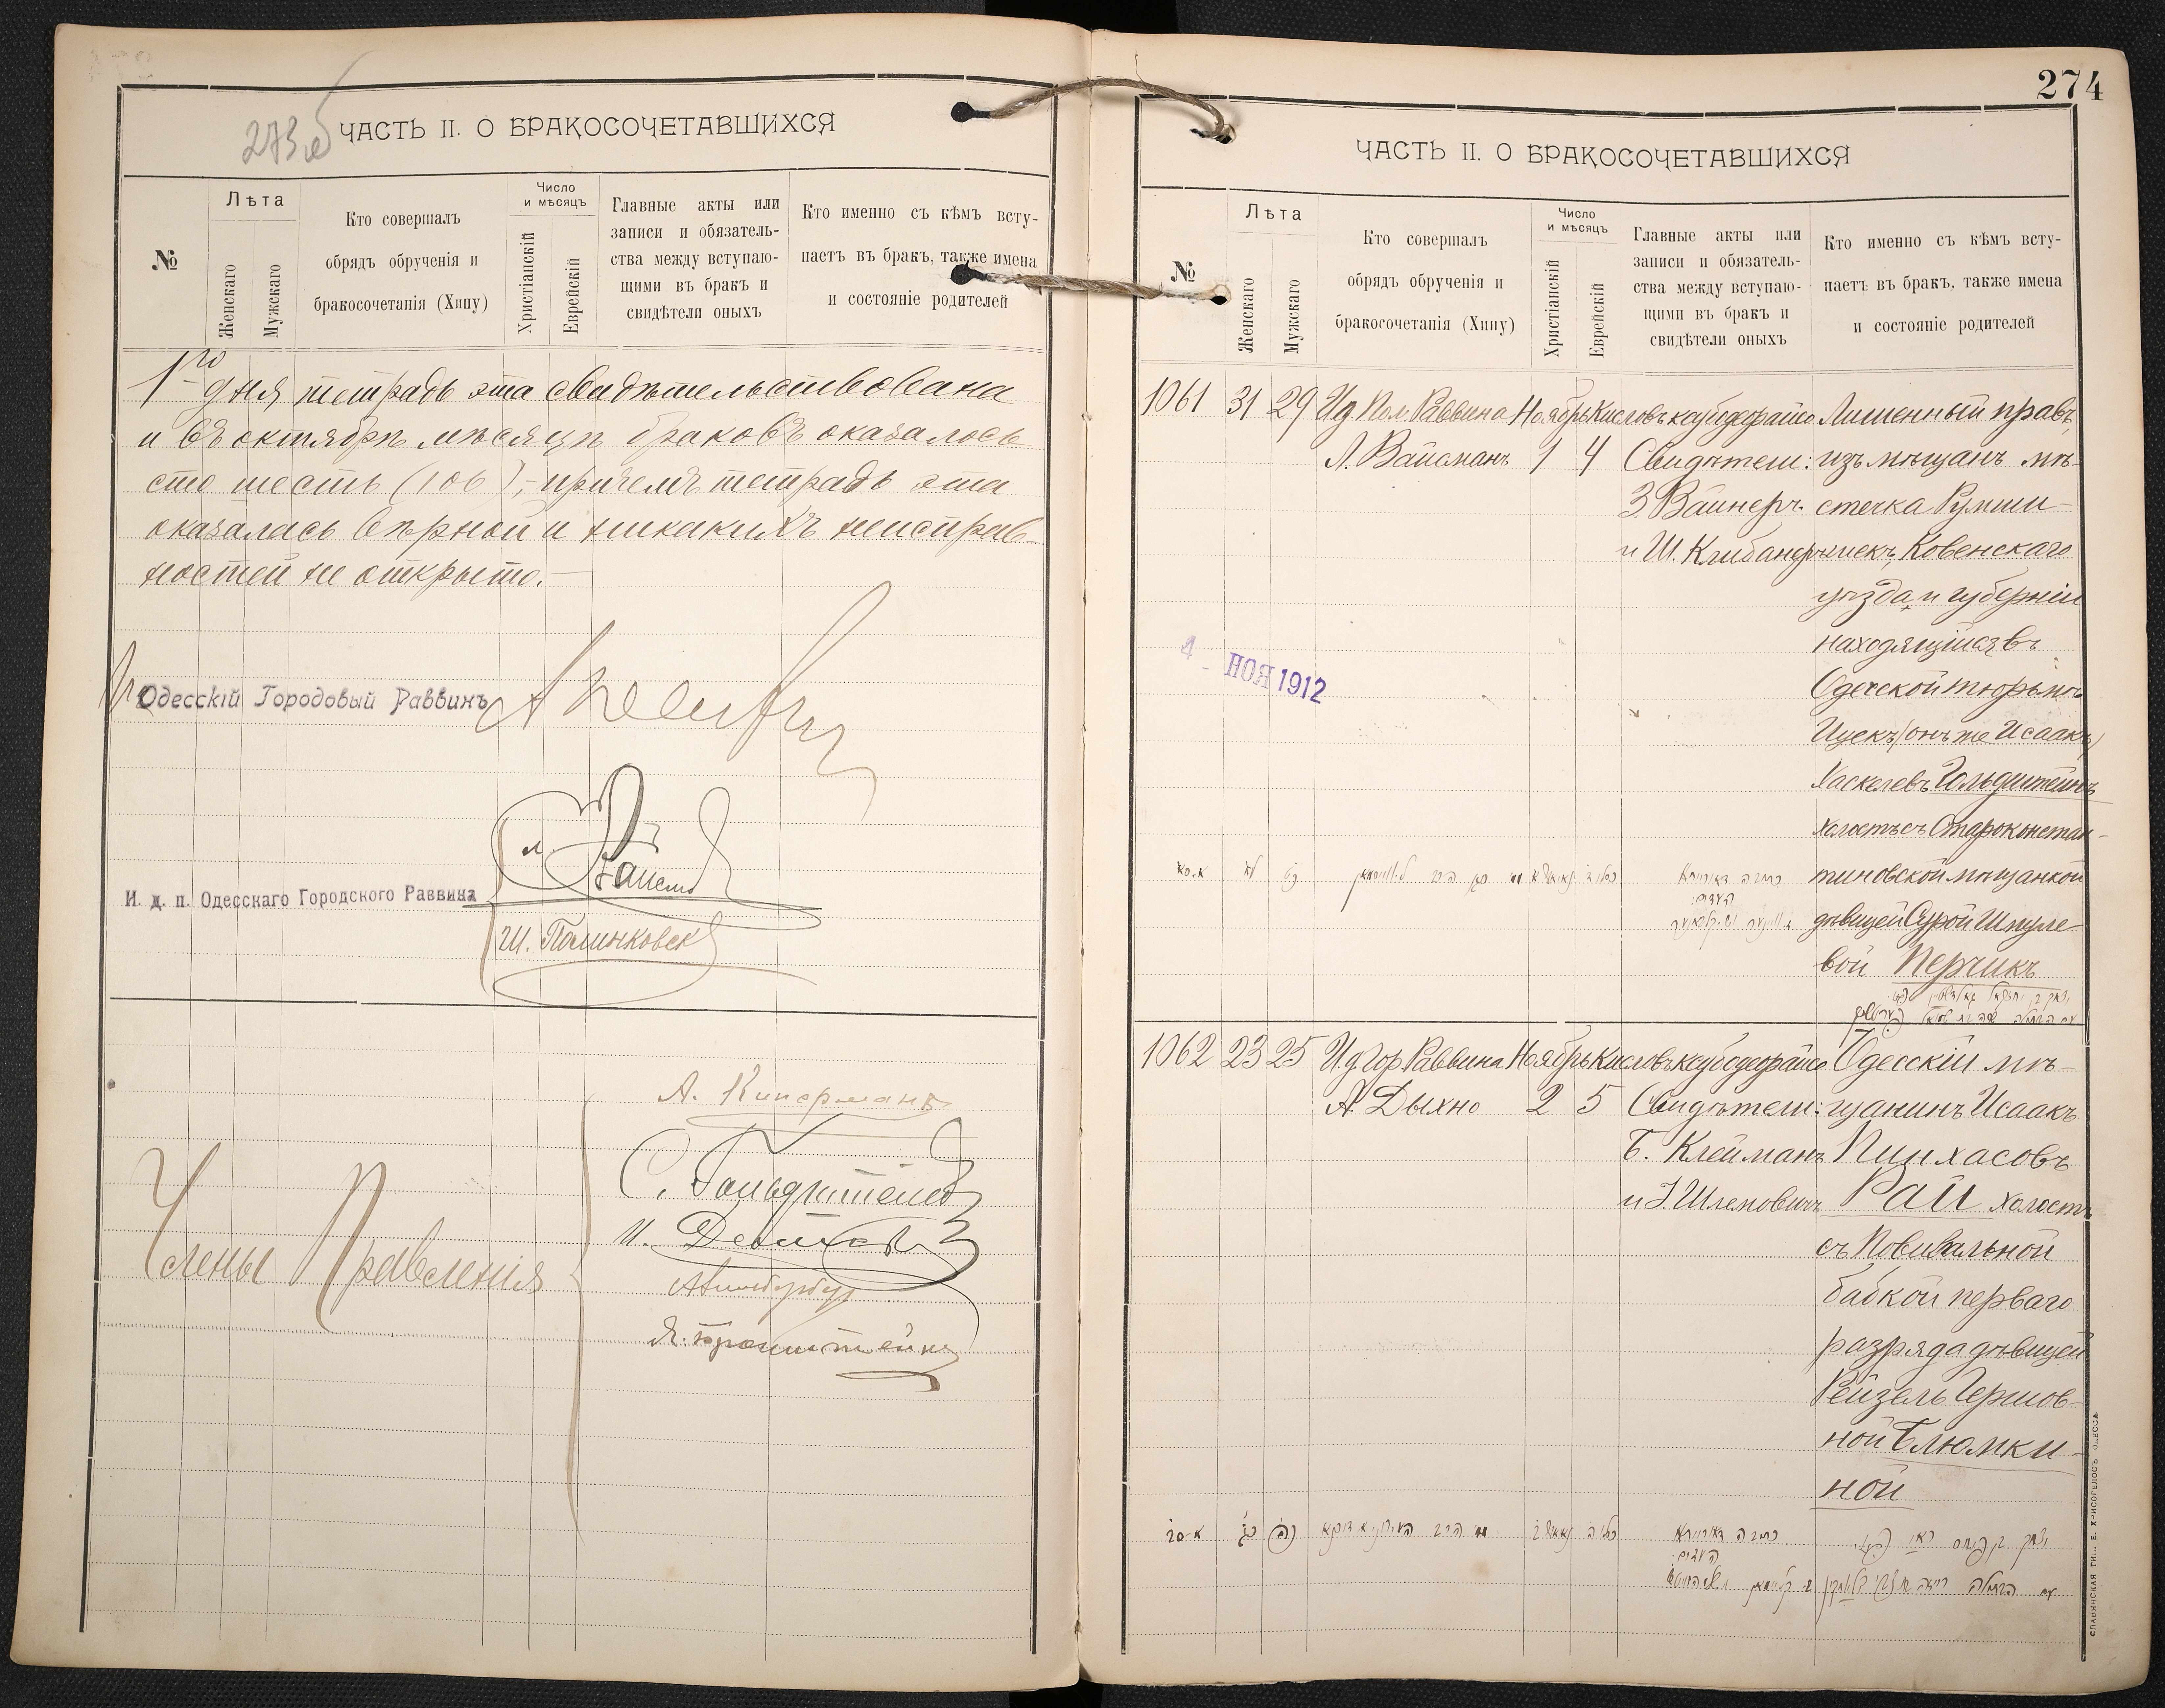 273 об
ЧАСТЬ II. О БРАКОСОЧЕТАВШИХСЯ
№
Лѣта
Женскаго
Мужскаго
Кто совершалъ
обрядъ обрученія и
бракосочетанія (Хипу)
Число
и мѣсяцъ
Христіанскій
Еврейскій
Главные акты или
записи и обязатель-
ства между вступаю-
щими въ бракъ и
свидѣтели оныхъ
Кто именно съ кѣмъ всту-
паетъ въ бракъ, также имена
и состояніе родителей
1го дня тетрадь эта свидѣтельствована
и въ октябрѣ мѣсяцѣ браковъ оказалось
сто шесть (106), причемъ тетрадь эта
оказалась вѣрной и никакихъ неисправ-
ностей не открыто.
Одесскій Городовый Раввинъ
И. д. п. Одесскаго Городского Раввина
Ш. Полинковск
Члены Правленія
А. Киперманъ
С. Гольдштейнъ
Я. Бронштейнъ
274
ЧАСТЬ II. О БРАКОСОЧЕТАВШИХСЯ
№
Лѣта
Женскаго
Мужскаго
Кто совершалъ
обрядъ обрученія и
бракосочетанія (Хипу)
Число
и мѣсяцъ
Христіанскій
Еврейскій
Главные акты или
записи и обязатель-
ства между вступаю-
щими въ бракъ и
свидѣтели оныхъ
Кто именно съ кѣмъ всту-
паетъ въ бракъ, также имена
и состояніе родителей
1061 31 29 Ид Пом. Раввина Ноябрь Кисловъ ксубодеорайсо Лишенный правъ,
Л. Вайсманъ 1 4 Свидѣтели: изъ мѣщанъ мѣ-
З. Вайнеръ стечка Румши-
и Ш. Клибанеръ шекъ, Ковенскаго
уѣзда и губерніи
находящійся въ
Одесской тюрьмѣ
Ицекъ (онъ же Исаакъ)
Хаскелевъ Гольдштейнъ
холостъ съ Староконстан-
тиновской мѣщанкой
дѣвицей Сурой Шмуле-
вой Перчикъ
4 - НОЯ 1912
1062 23 25 И.д Гор Раввина Ноябрь Кисловъ ксубодеорайсо Одесскій мѣ-
А. Дыхно 2 5 Свидѣтели: щанинъ Исаакъ
Б. Клейманъ Пинхасовъ
и І. Шлемовичъ Рай холостъ
съ Повивальной
бабкой перваго
разряда дѣвицей
Рейзель Гершов-
ной Блюмки-
ной
СЛАВЯНСКАЯ ТИП. Е. ХРИСОГЕЛОСЪ ОДЕССА